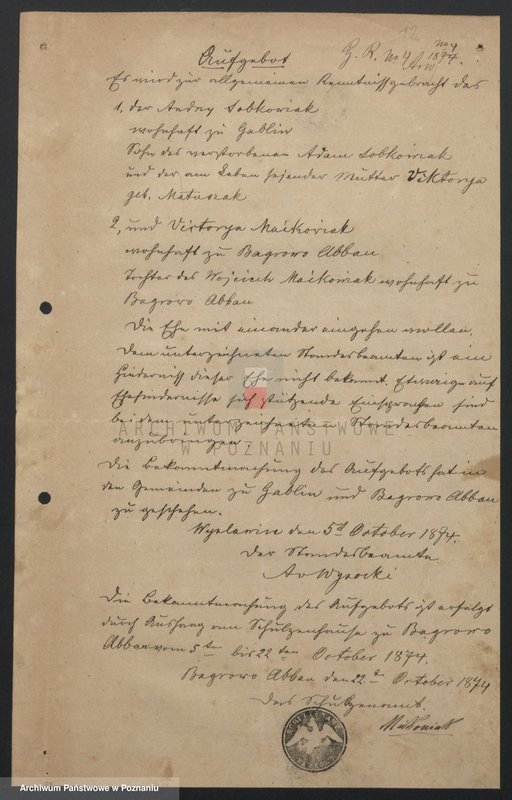 12
No 4
Aufgebot
G. R. No 4 / 1874.
Es wird zur allgemeinen Kenntniß gebracht das
1, der Andrey Sobkowiak
wohnhaft zu Gablin
Sohn des verstorbenen Adam Sobkowiak
und der am Leben sejender Mutter Viktorya
geb. Matuszak
2, und Victorya Maćkowiak
wohnhaft zu Bagrowo Abbau
Tochter des Wojciech Maćkowiak wohnhaft zu
Bagrowo Abbau
Die Ehe mit einander eingehen wollen.
Dem unterzeichneten Standesbeamten ist ein
Hinderniß dieser Ehe nicht bekannt. Etwaige auf
Ehehindernisse sich stützende Einsprachen sind
bei dem unterzeichneten Standesbeamten
anzubringen
ARCHIWUM PAŃSTWOWE
W POZNANIU
Die Bekanntmachung des Aufgebots hat in
den Gemeinden zu Gablin und Bagrowo Abbau
zu geschehen.
den 5t October 1874.
Der Standesbeamte
Av Wysocki
Die Bekanntmachung des Aufgebots ist erfolgt
durch Aushang am Schulzenhause zu Bagrowo
Abbau vom 5ten bis 22ten October 1874.
Bagrowo Abbau den 22ten October 1874
Das Schulzenamt.
Maćkowiak
Archiwum Państwowe w Poznaniu